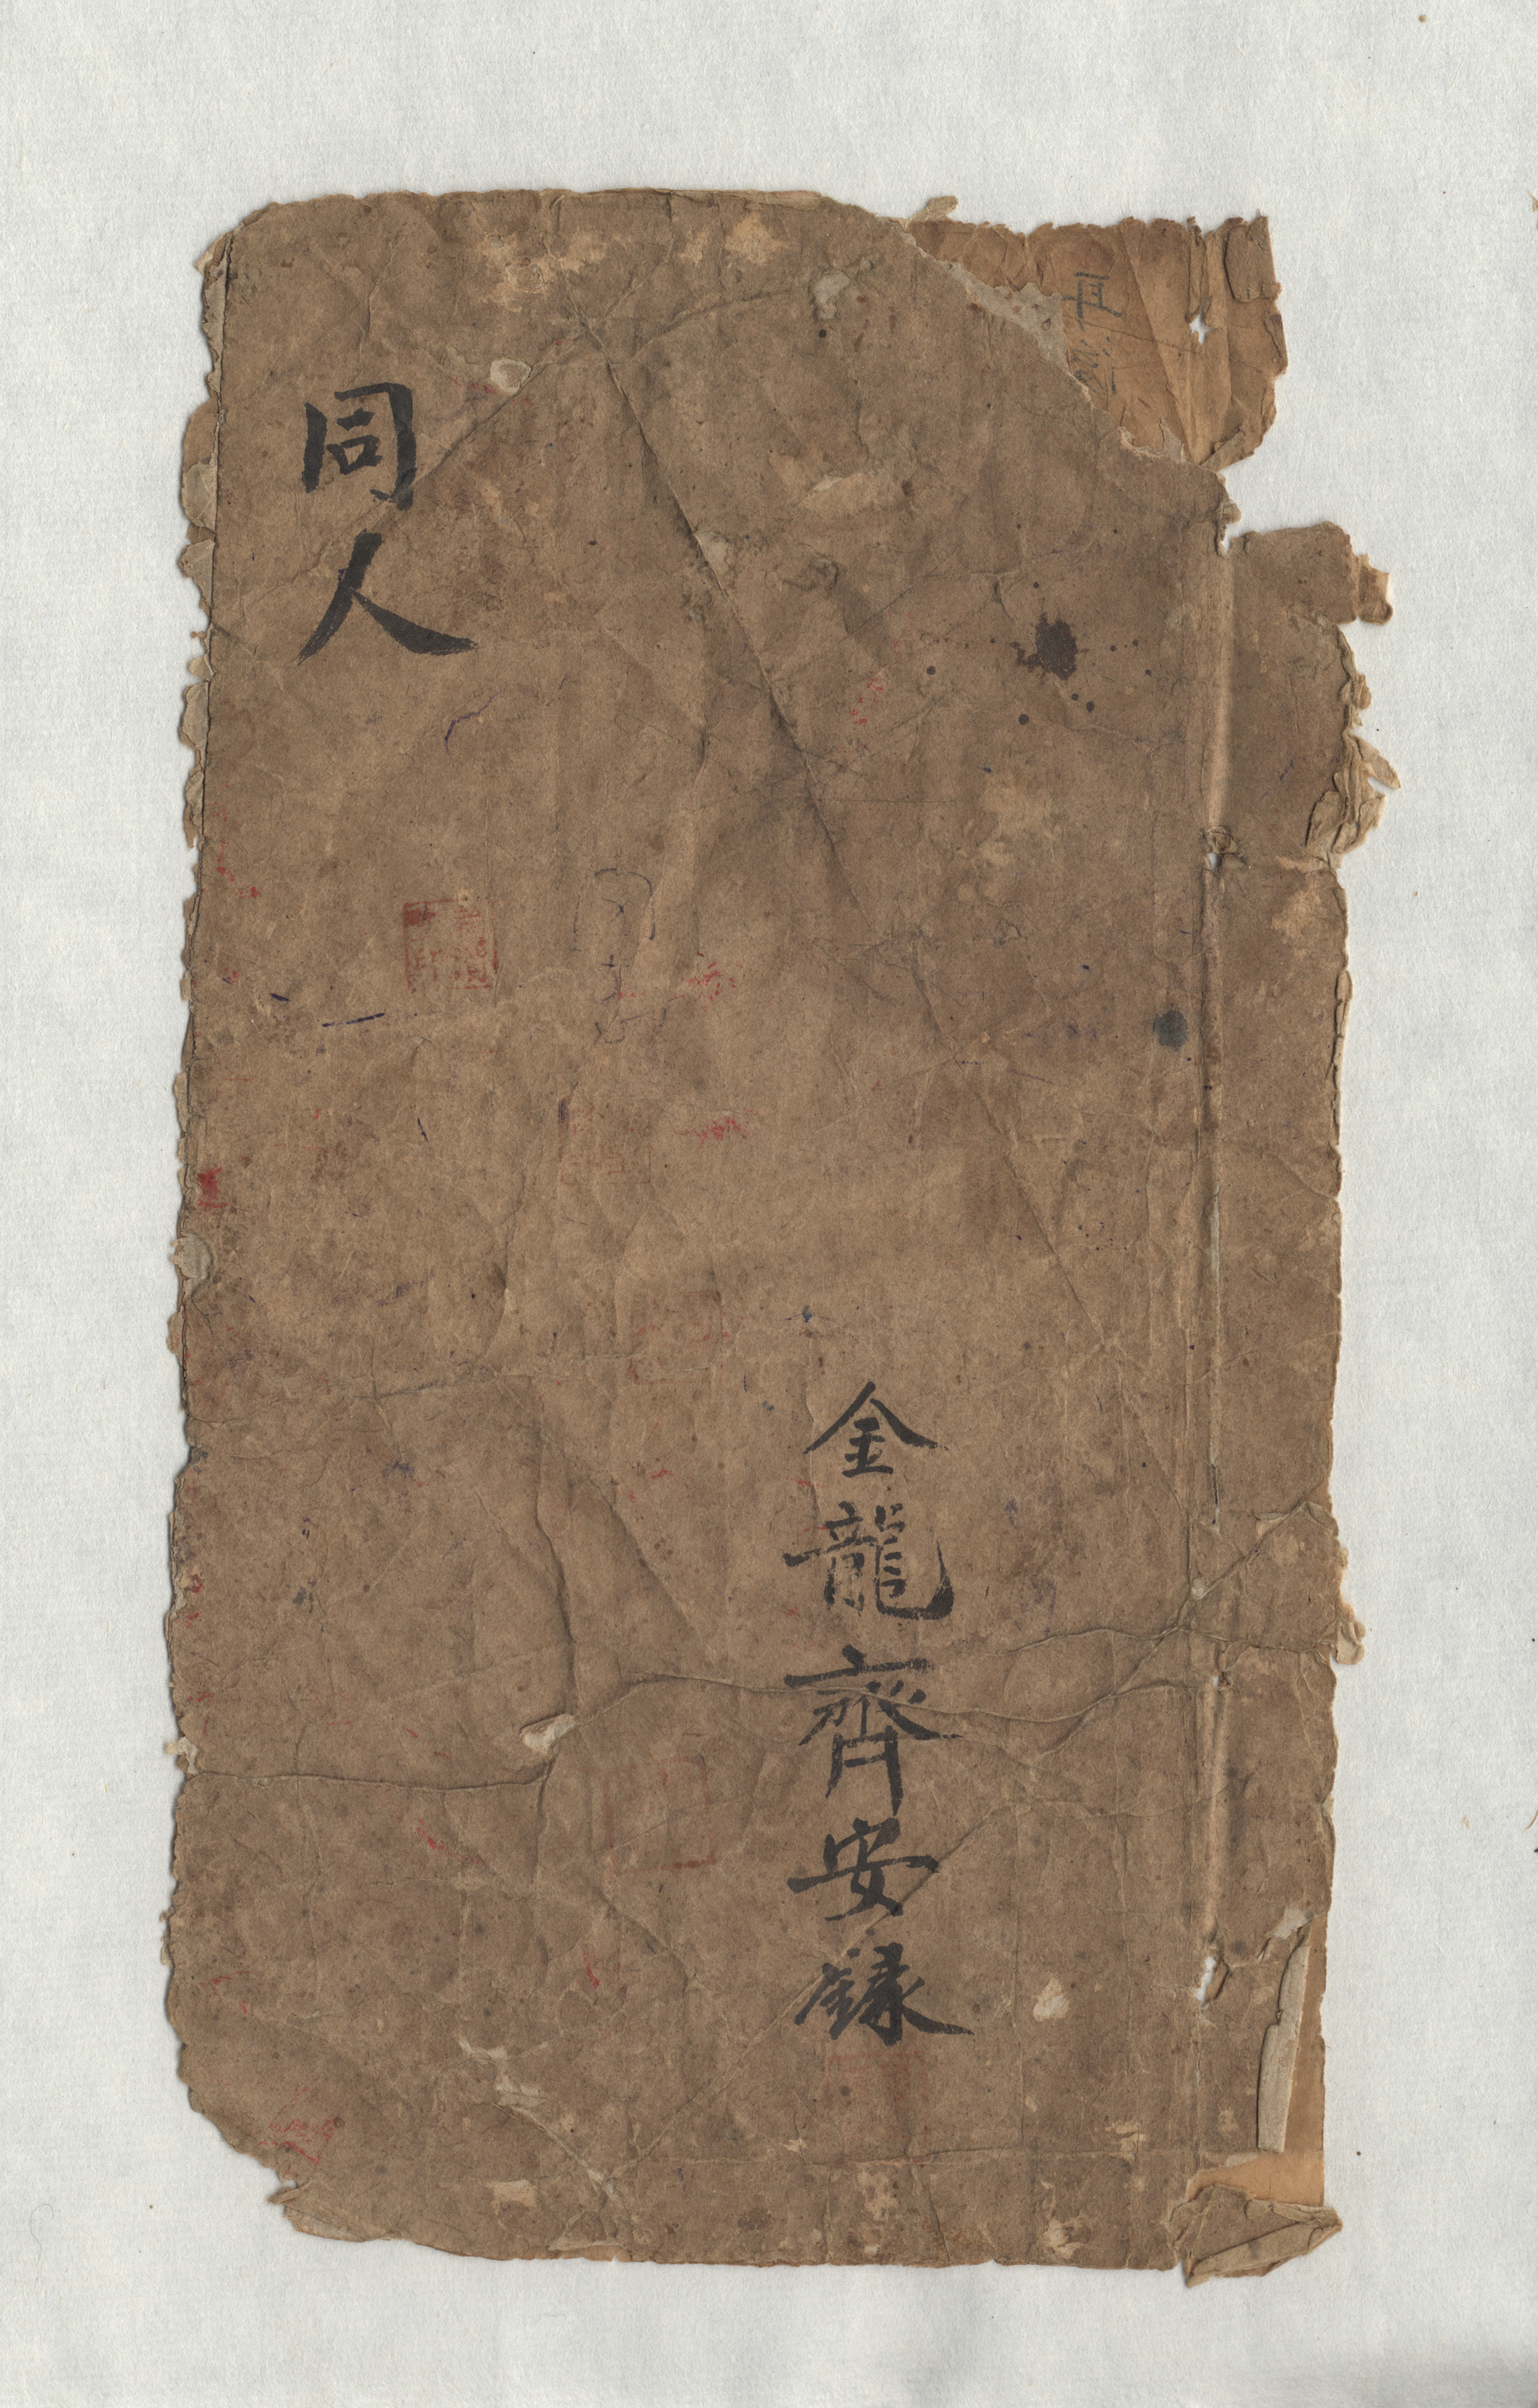 金龍齊安録
同人